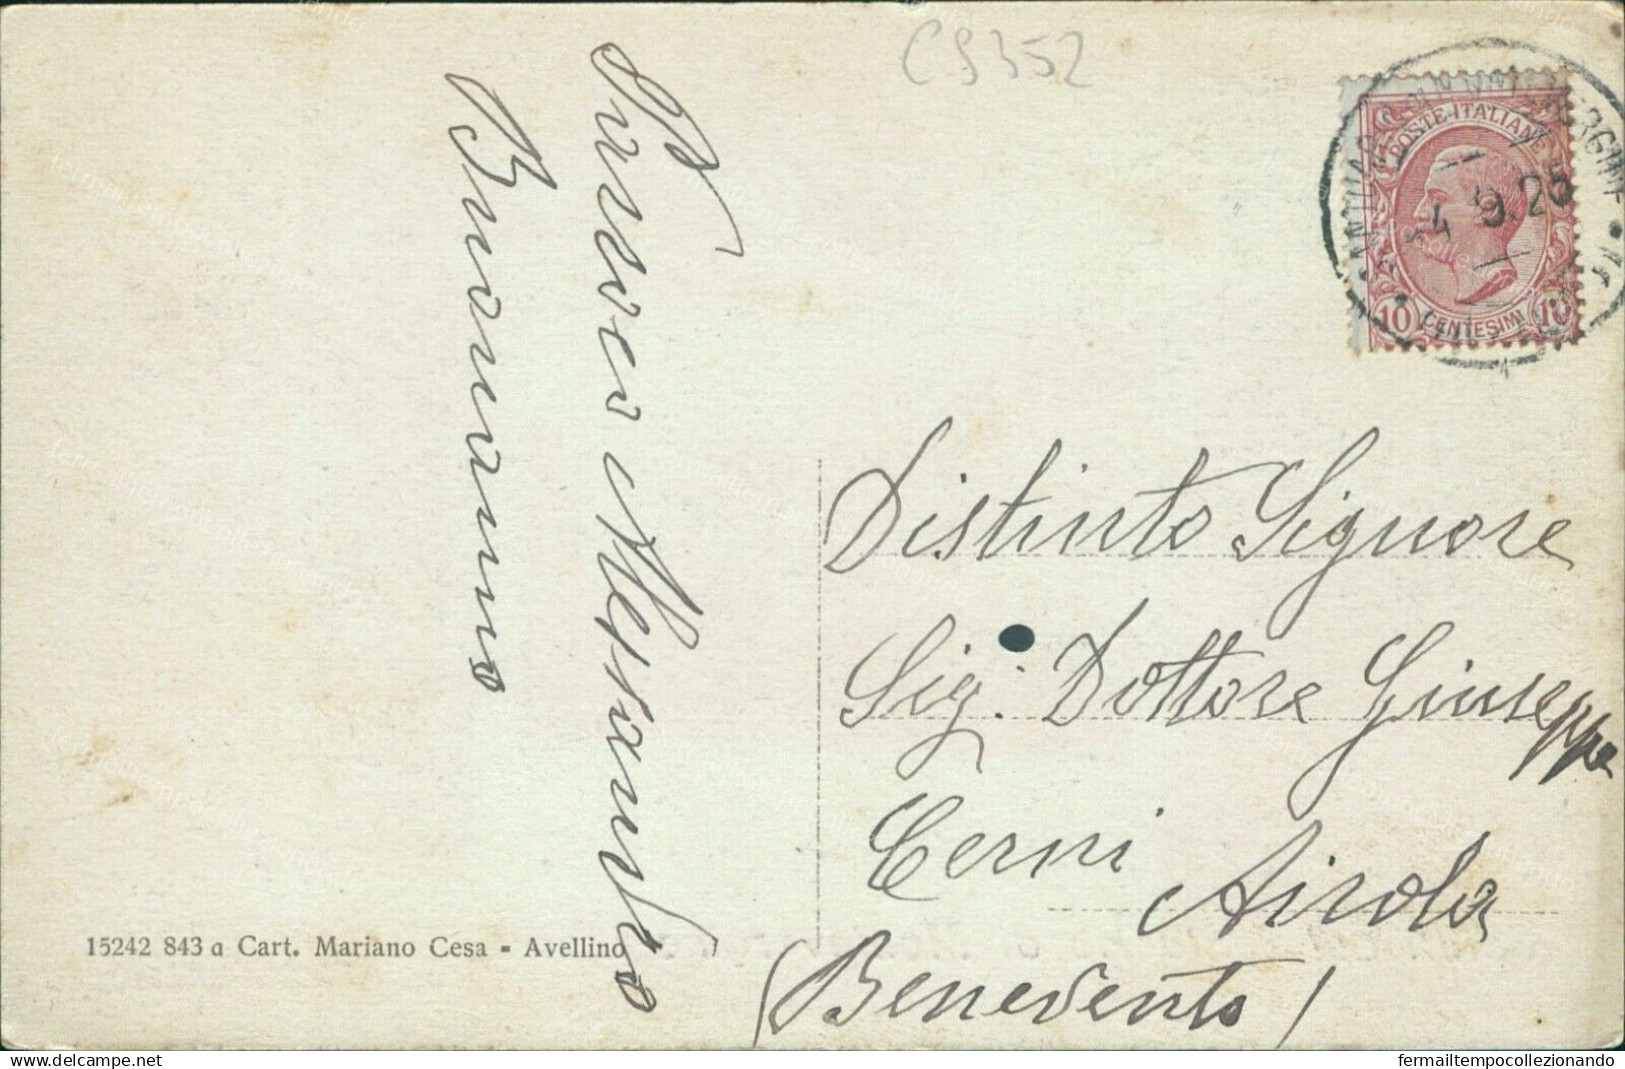 CS352
POSTE ITALIANE
4 9.25
10 CENTESIMI 10
Distinto Signore
Sig: Dottore Giuseppe
Cerni
Airola
(Benevento)
Alessandro
Buonanno
15242 843 a Cart. Mariano Cesa - Avellino
delcampe.net
fermailtempocollezionando